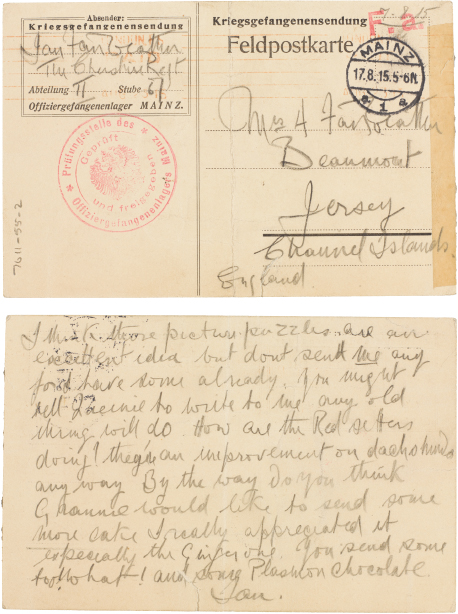 Absender:
Kriegsgefangenensendung
Ian Fairweather
Abteilung II Stube
Offiziergefangenenlager MAINZ.
Prüfungsstelle des Offiziergefangenenlagers Mainz
Geprüft
und freigegeben
Kriegsgefangenensendung
8 15
F.a.
Feldpostkarte
MAINZ
17.8.15.5-6N
* 1 a.
Mrs Fairweather
Beaumont
Jersey
Channel Islands
England
7611-55-2
picture puzzles are an
excellent idea but dont send me any
for I have some already. You might
tell to write to me any old
thing will do. How are the Red setters
doing! an improvement on dachshunds
any way By the way Do you think
Grannie would like to send some
more cake I really appreciated it
especially the Ginger one. You send some
too what! and some Plasmon Chocolate.
Ian.